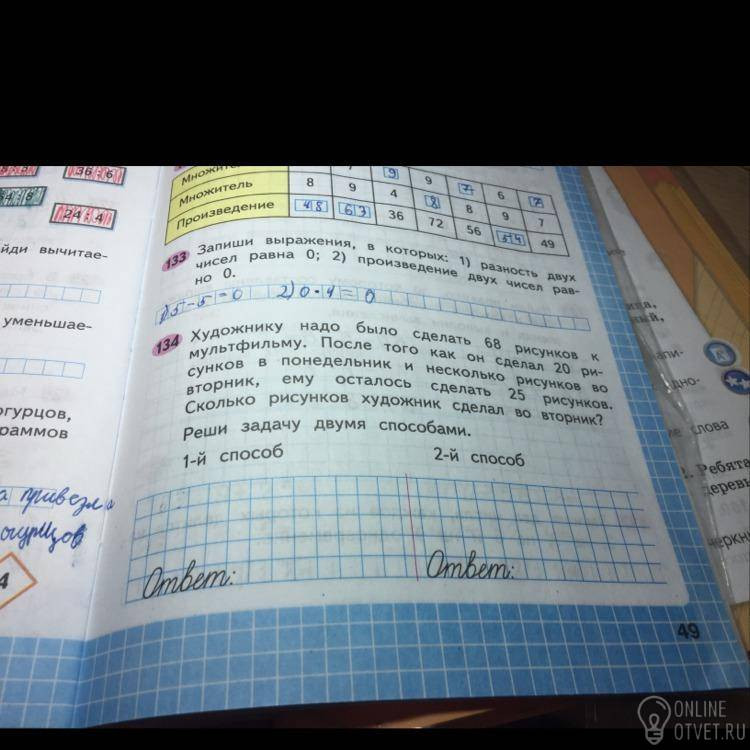 36:6
24:4
Множитель 9 9 7 6 7
Множитель 8 9 4 8 8 9 7
Произведение 48 63 36 72 56 54 49
133 Запиши выражения, в которых: 1) разность двух
чисел равна 0; 2) произведение двух чисел рав-
но 0.
1) 5-5=0 2) 0·4=0
134 Художнику надо было сделать 68 рисунков к
мультфильму. После того как он сделал 20 ри-
сунков в понедельник и несколько рисунков во
вторник, ему осталось сделать 25 рисунков.
Сколько рисунков художник сделал во вторник?
Реши задачу двумя способами.
1-й способ 2-й способ
Ответ: Ответ:
49
йди вычитае-
уменьшае-
огурцов,
граммов
а привезла
огурцов
4
дно-
ие слова
Ребята
деревь
черкн
ONLINE
OTVET.RU